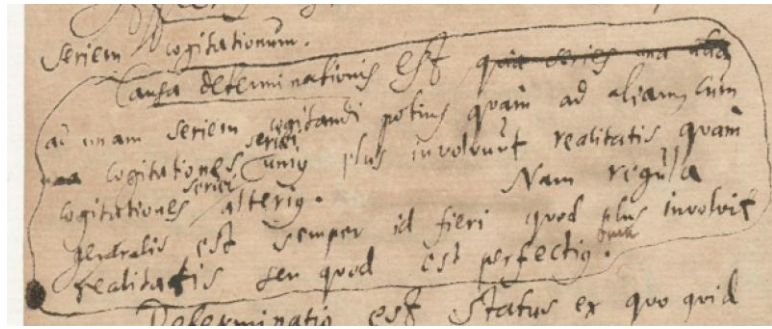 seriem cogitationum.
Causa determinationis est quia series una alia
ad unam seriem cogitandi potius quam ad aliam cum
cogitationes seriei unius plus involvunt realitatis quam
cogitationes seriei alterius. Nam regula
generalis est semper id fieri quod plus involvit
realitatis seu quod est perfectius.
Determinatio est status ex quo quid